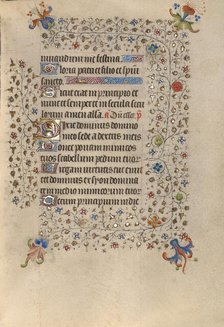 iuuandum me festina
Gloria patri et filio et spiri
sancto
Sicut erat in principio et
nunc et semper et in secula secu
lorum amen alla. a
Dixit dominus domino
meo sede a dextris meis
ponam inimicos
scabellum pedum tuorum
Virgam uirtutis tue emit
tet dominus ex syon domina
re in medio inimicorum tuor
Tecum principium in die